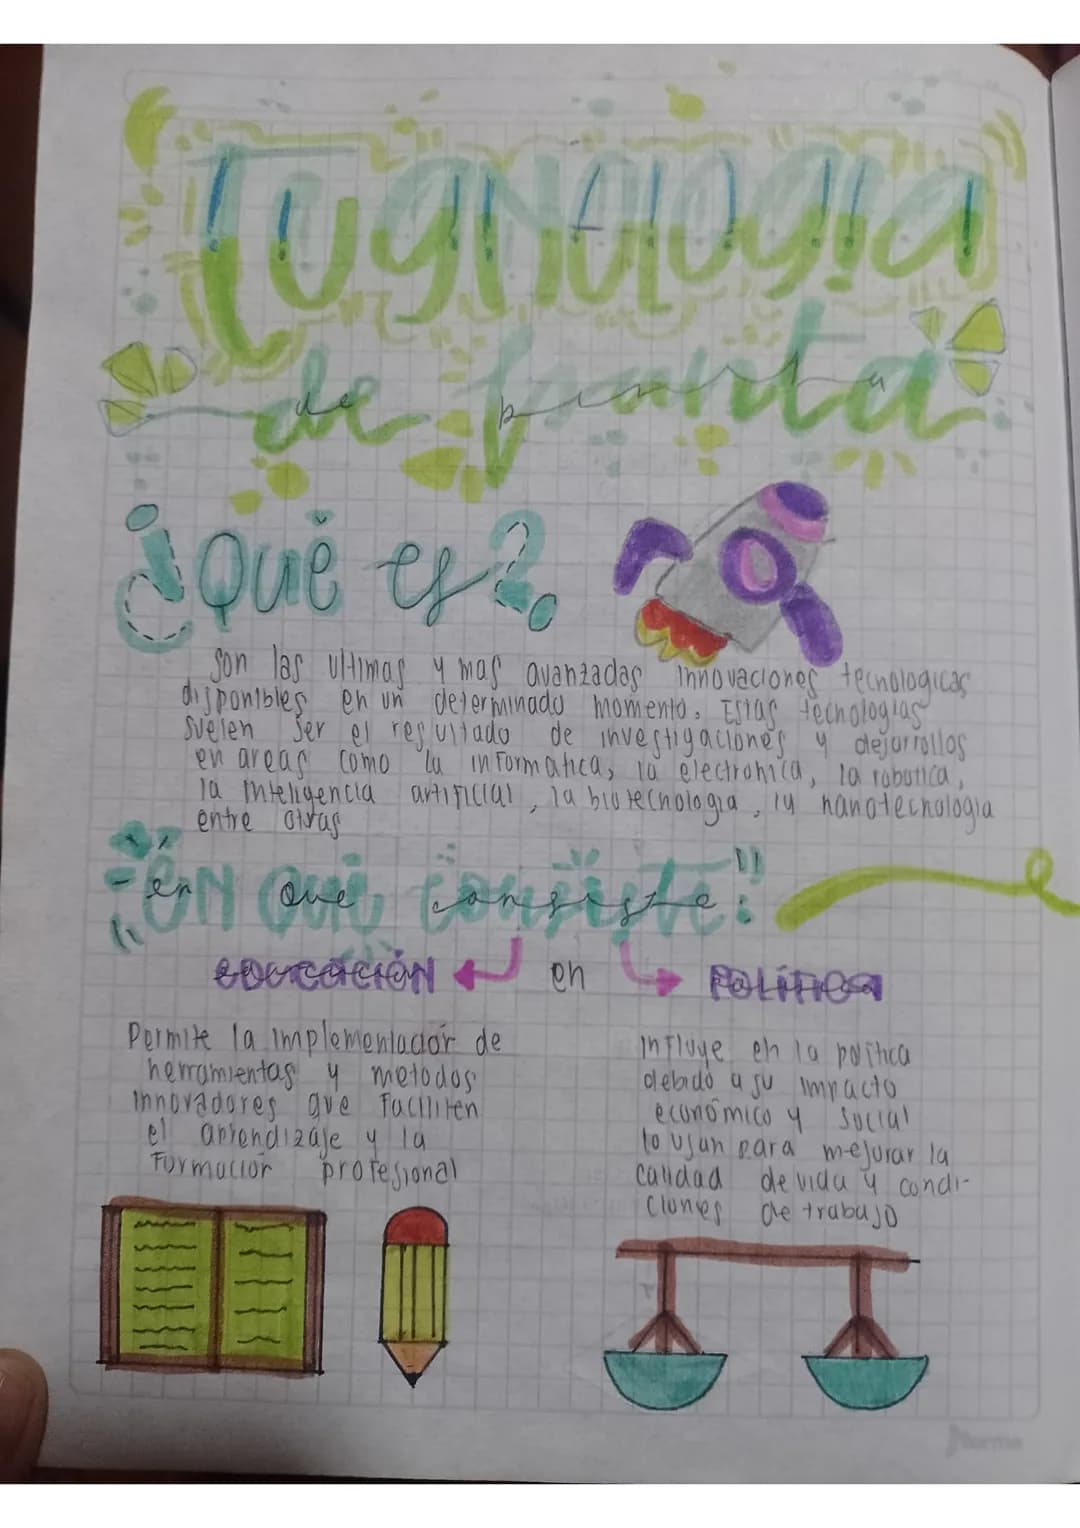 Tecgnología
de punta
¿Qué es?
Son las ultimas y mas avanzadas innovaciones tecnologicas
disponibles en un determinado momento. Estas tecnologias
suelen ser el resultado de investigaciones y desarrollos
en areas como la informatica, la electronica, la robotica,
la inteligencia artificial, la biotecnologia, la nanotecnologia
entre otras
- en que consiste:
EDUCACIÓN en POLÍTICA
Permite la implementación de
herramientas y metodos
innovadores que faciliten
el aprendizaje y la
Formación profesional
influye en la política
debido a su impacto
económico y social
lo usan para mejorar la
calidad de vida y condi-
ciones de trabajo
Norma